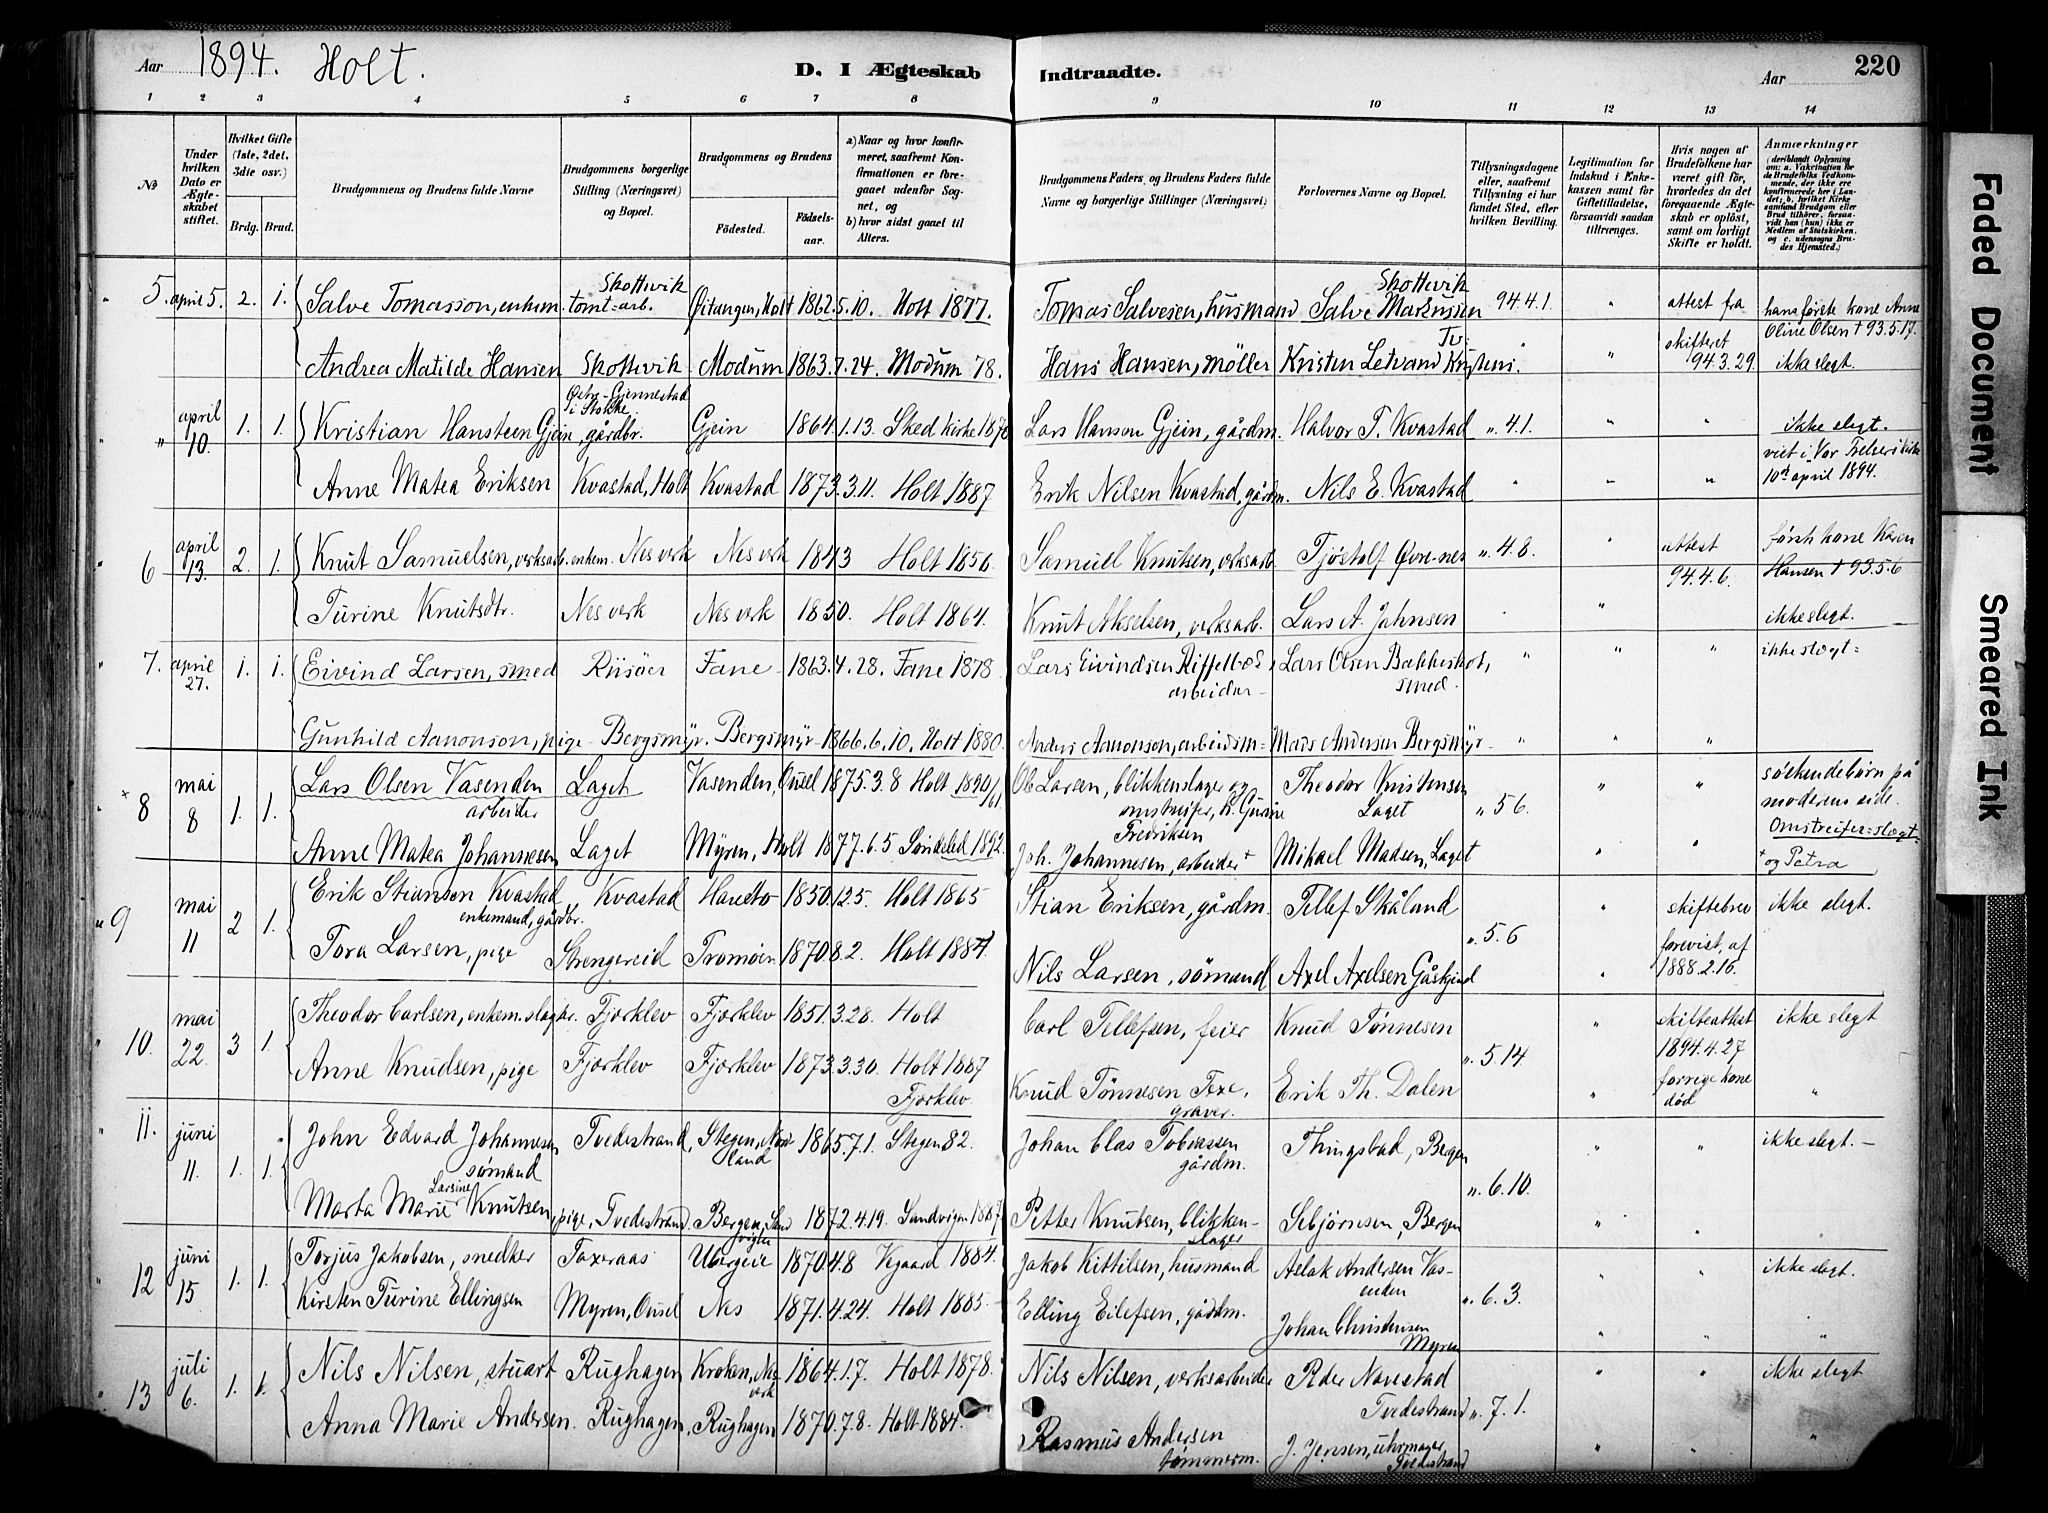 Aar 1894. Holt. D. I Ægteskab Indtraadte. Aar 220
1 2 3 4 5 6 7 8 9 10 11 12 13 14
No
Under hvilken Dato er Ægteskabet stiftet.
Hvilket Gifte (1ste, 2det, 3die osv.)
Brdg. Brud.
Brudgommens og Brudens fulde Navne
Brudgommens borgerlige Stilling (Næringsvei) og Bopæl.
Brudgommens og Brudens
Fødested. Fødselsaar.
a) Naar og hvor konfirmeret, saafremt Konfirmationen er foregaaet udenfor Sognet, og
b) hvor sidst gaaet til Alters.
Brudgommens Faders og Brudens Faders fulde Navne og borgerlige Stillinger (Næringsvei)
Forlovernes Navne og Bopæl.
Tillysningsdagene eller, saafremt Tillysning ei har fundet Sted, efter hvilken Bevilling.
Legitimation for Indskud i Enkekassen samt for Giftetilladelse, forsaavidt saadan tiltrænges.
Hvis nogen af Brudefolkene har været gift før, hvorledes da det foregaaende Ægteskab er opløst, samt om lovligt Skifte er holdt.
Anmærkninger
5. april 5. 2. 1. Salve Tomasson, enkem. Skottevik tomt-arb. Holt 1862.5.10. Holt 1877. Tomas Salvesen, husmand Skottevik Salve Markussen 94.4.1. attest fra hans første kone Anne Oline Olsen † 93.5.17.
Andrea Matilde Hansen Skottevik Modum 1863.7.24. Modum 78. Hans Hansen, möller Kristen Letvand skifteret 94.3.29. ikke slegt.
april 10. 1. 1. Kristian Hansteen Gjein, gårdbr. i Stokke Gjein 1864.1.13. Sked kirke 1878 Lars Hanson Gjein, gårdm. Halvor T. Kvastad 4.1. ikke slegt.
Anne Matea Eriksen Kvastad, Holt Kvastad 1873.3.11. Holt 1887 Erik Nilsen Kvastad, gårdm. Nils E. Kvastad viet i Vor Frelsers kirke 10de april 1894.
6 april 13. 2. 1. Knut Samuelsen, verksarb. enkem. Nes verk Nes verk 1843 Holt 1856. Samuel Knutsen, verksarb. Tjöstolf Övre-nes 4.8. attest först kone Karen Hansen † 93.5.6
Turine Knutsdtr. Nes verk Nes verk 1850. Holt 1864. Knut Akselsen, verksarb. Lars A. Jahnsen 94.4.6. ikke slegt.
7. april 27. 1. 1. Eivind Larsen, smed Riisöer Fane 1863.4.28. Fane 1878 Lars Eivindsen arbeider Lars Olsen smed. ikke slegt
Gunhild Aanonson, pige Bergsmyr. Bergsmyr 1866.6.10. Holt 1880. Anders Aanonson, arbeidsm. Mads Andersen Bergsmyr
8 mai 8 1. 1. Lars Olsen Vasenden arbeider Laget Vasenden, Ousel 1875.3.8 Holt 1890/91 Ole Larsen, blikkenslager og omstreifer, Fredriksen Theodor Kristensen Laget 5 6. söskendebörn på moderens side. Omstreifer-slegt
Anne Matea Johannesen Laget Myren, Holt 1877.6.5 Söndeled 1892. Joh. Johannesen, arbeider Mikael Madsen, Laget og Petra
9 mai 11 2 1. Erik Stiansen Kvastad enkemand, gårdbr. Kvastad 1850.12.5. Holt 1865 Stian Eriksen, gårdm. Tellef Skåland 5.6 skiftebrev ikke slegt.
Tora Larsen, pige Strengereid Tromöen 1870.8.2. Holt 1884. Nils Larsen, sömand Axel Axelsen forevist, af 1888.2.16.
10. mai 22. 3 1. Theodor Carlsen, enkem. Fjorklev Fjorklev 1851.3.28. Holt Carl Tellefsen, feier Knud Tönnesen 5.14 skifteattest 1894.4.27 ikke slegt
Anne Knudsen, pige Fjorklev Fjorklev 1873.3.30. Holt 1887 Fjorklev Knud Tönnesen graver. Erik Th. Dalen forrige kone död
11. juni 11. 1. 1. John Edvard Johannesen sömand Tvedestrand, Stegen, Nordland 1865.7.1. Stegen 82. Johan Clas Tobiassen gårdm. Thingstad, Bergen 6.10. ikke slegt.
Marta Marie Larsine Knutsen, pige, Tvedestrand. Bergen, Sandvigen 1872.4.19. Sandvigen 1887 Petter Knutsen, blikkenslager Sebjörnsen, Bergen
12 juni 15 1. 1. Torjus Jakobsen, snedker Taxeraas Ubergeie 1870.4.8 Vegaard 1884. Jakob Kittilsen, husmand Aslak Andersen Vasenden 6.3. ikke slegt.
Kirsten Turine Ellingsen Myren, Ousel Nes 1871.4.24. Holt 1885. Elling Eilefsen, gårdm. Johan Christensen Myren
13 juli 6. 1. 1. Nils Nilsen, stuart Rughagen Kroken, Nes verk 1864.1.7. Holt 1878. Nils Nilsen, verksarbeider Peder Naustad Tvedestrand 7.1. ikke slegt
Anna Marie Andersen. Rughagen, Rughagen 1870.7.8. Holt 1884. Rasmus Andersen tömmerm. J. Jensen, uhrmager, Tvedestrand
Faded Document
Smeared Ink